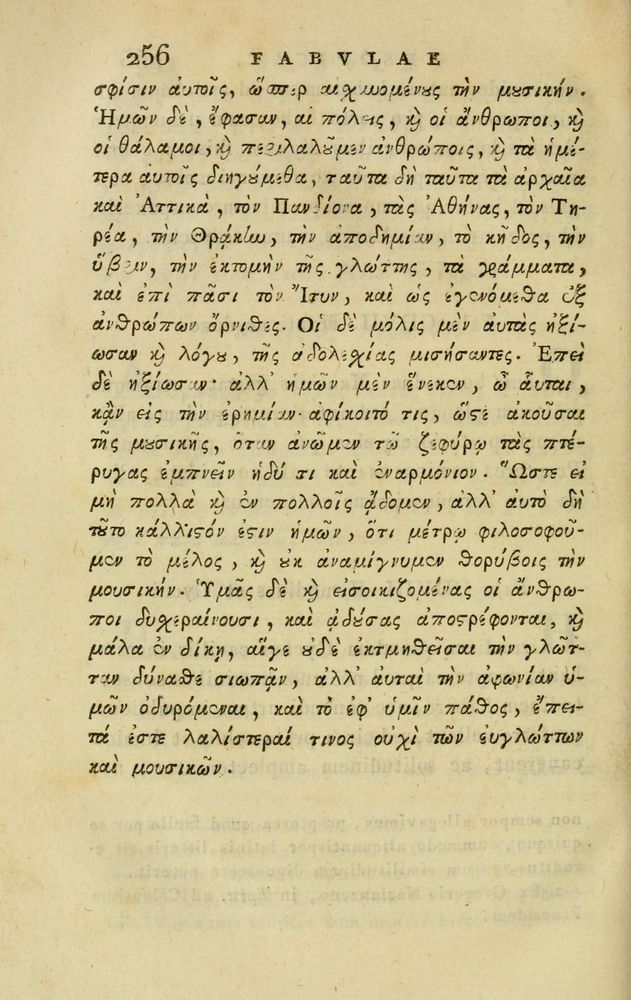 256 FABVLAE
σφίσιν αὐτοῖς, ὥσπερ αἰσχυνομένους τὴν μουσικήν.
Ἡμῶν δὲ, ἔφασαν, αἱ πόλεις, καὶ οἱ ἄνθρωποι, καὶ
οἱ θάλαμοι, καὶ περιλαλοῦμεν ἀνθρώποις, καὶ τὰ ἡμέ-
τερα αὐτοῖς διηγούμεθα, ταῦτα δὴ ταῦτα τὰ ἀρχαῖα
καὶ Ἀττικὰ, τὸν Πανδίονα, τὰς Ἀθήνας, τὸν Τη-
ρέα, τὴν Θρᾴκην, τὴν ἀποδημίαν, τὸ κῆδος, τὴν
ὕβριν, τὴν ἐκτομὴν τῆς γλώττης, τὰ γράμματα,
καὶ ἐπὶ πᾶσι τὸν Ἴτυν, καὶ ὡς ἐγενόμεθα ἐξ
ἀνθρώπων ὄρνιθες. Οἱ δὲ μόλις μὲν αὐτὰς ἠξί-
ωσαν καὶ λόγου, τῆς ἀδολεχίας μισήσαντες. Ἐπεὶ
δὲ ἠξίωσαν· ἀλλ' ἡμῶν μὲν ἕνεκεν, ὦ αὗται,
κἂν εἰς τὴν ἐρημίαν· ἀφίκοιτό τις, ὥστε ἀκοῦσαι
τῆς μουσικῆς, ὅταν ἀνῶμεν τῷ ζεφύρῳ τὰς πτέ-
ρυγας ἐμπνεῖν ἡδύ τι καὶ ἐναρμόνιον. Ὥστε εἰ
μὴ πολλὰ καὶ ἐν πολλοῖς ᾄδομεν, ἀλλ' αὐτὸ δὴ
τοῦτο κάλλιστόν ἐστιν ἡμῶν, ὅτι μέτρῳ φιλοσοφοῦ-
μεν τὸ μέλος, καὶ οὐκ ἀναμίγνυμεν θορύβοις τὴν
μουσικήν. Ὑμᾶς δὲ καὶ εἰσοικιζομένας οἱ ἄνθρω-
ποι δυχεραίνουσι, καὶ ᾀδούσας ἀποστρέφονται, καὶ
μάλα ἐν δίκῃ, αἵγε οὐδὲ ἐκτμηθεῖσαι τὴν γλῶτ-
ταν δύναθε σιωπᾷν, ἀλλ' αὐταὶ τὴν ἀφωνίαν ὑ-
μῶν ὀδυρόμεναι, καὶ τὸ ἐφ' ὑμῖν πάθος, ἔπει-
τά ἐστε λαλίστεραί τινος οὐχὶ τῶν εὐγλώττων
καὶ μουσικῶν.